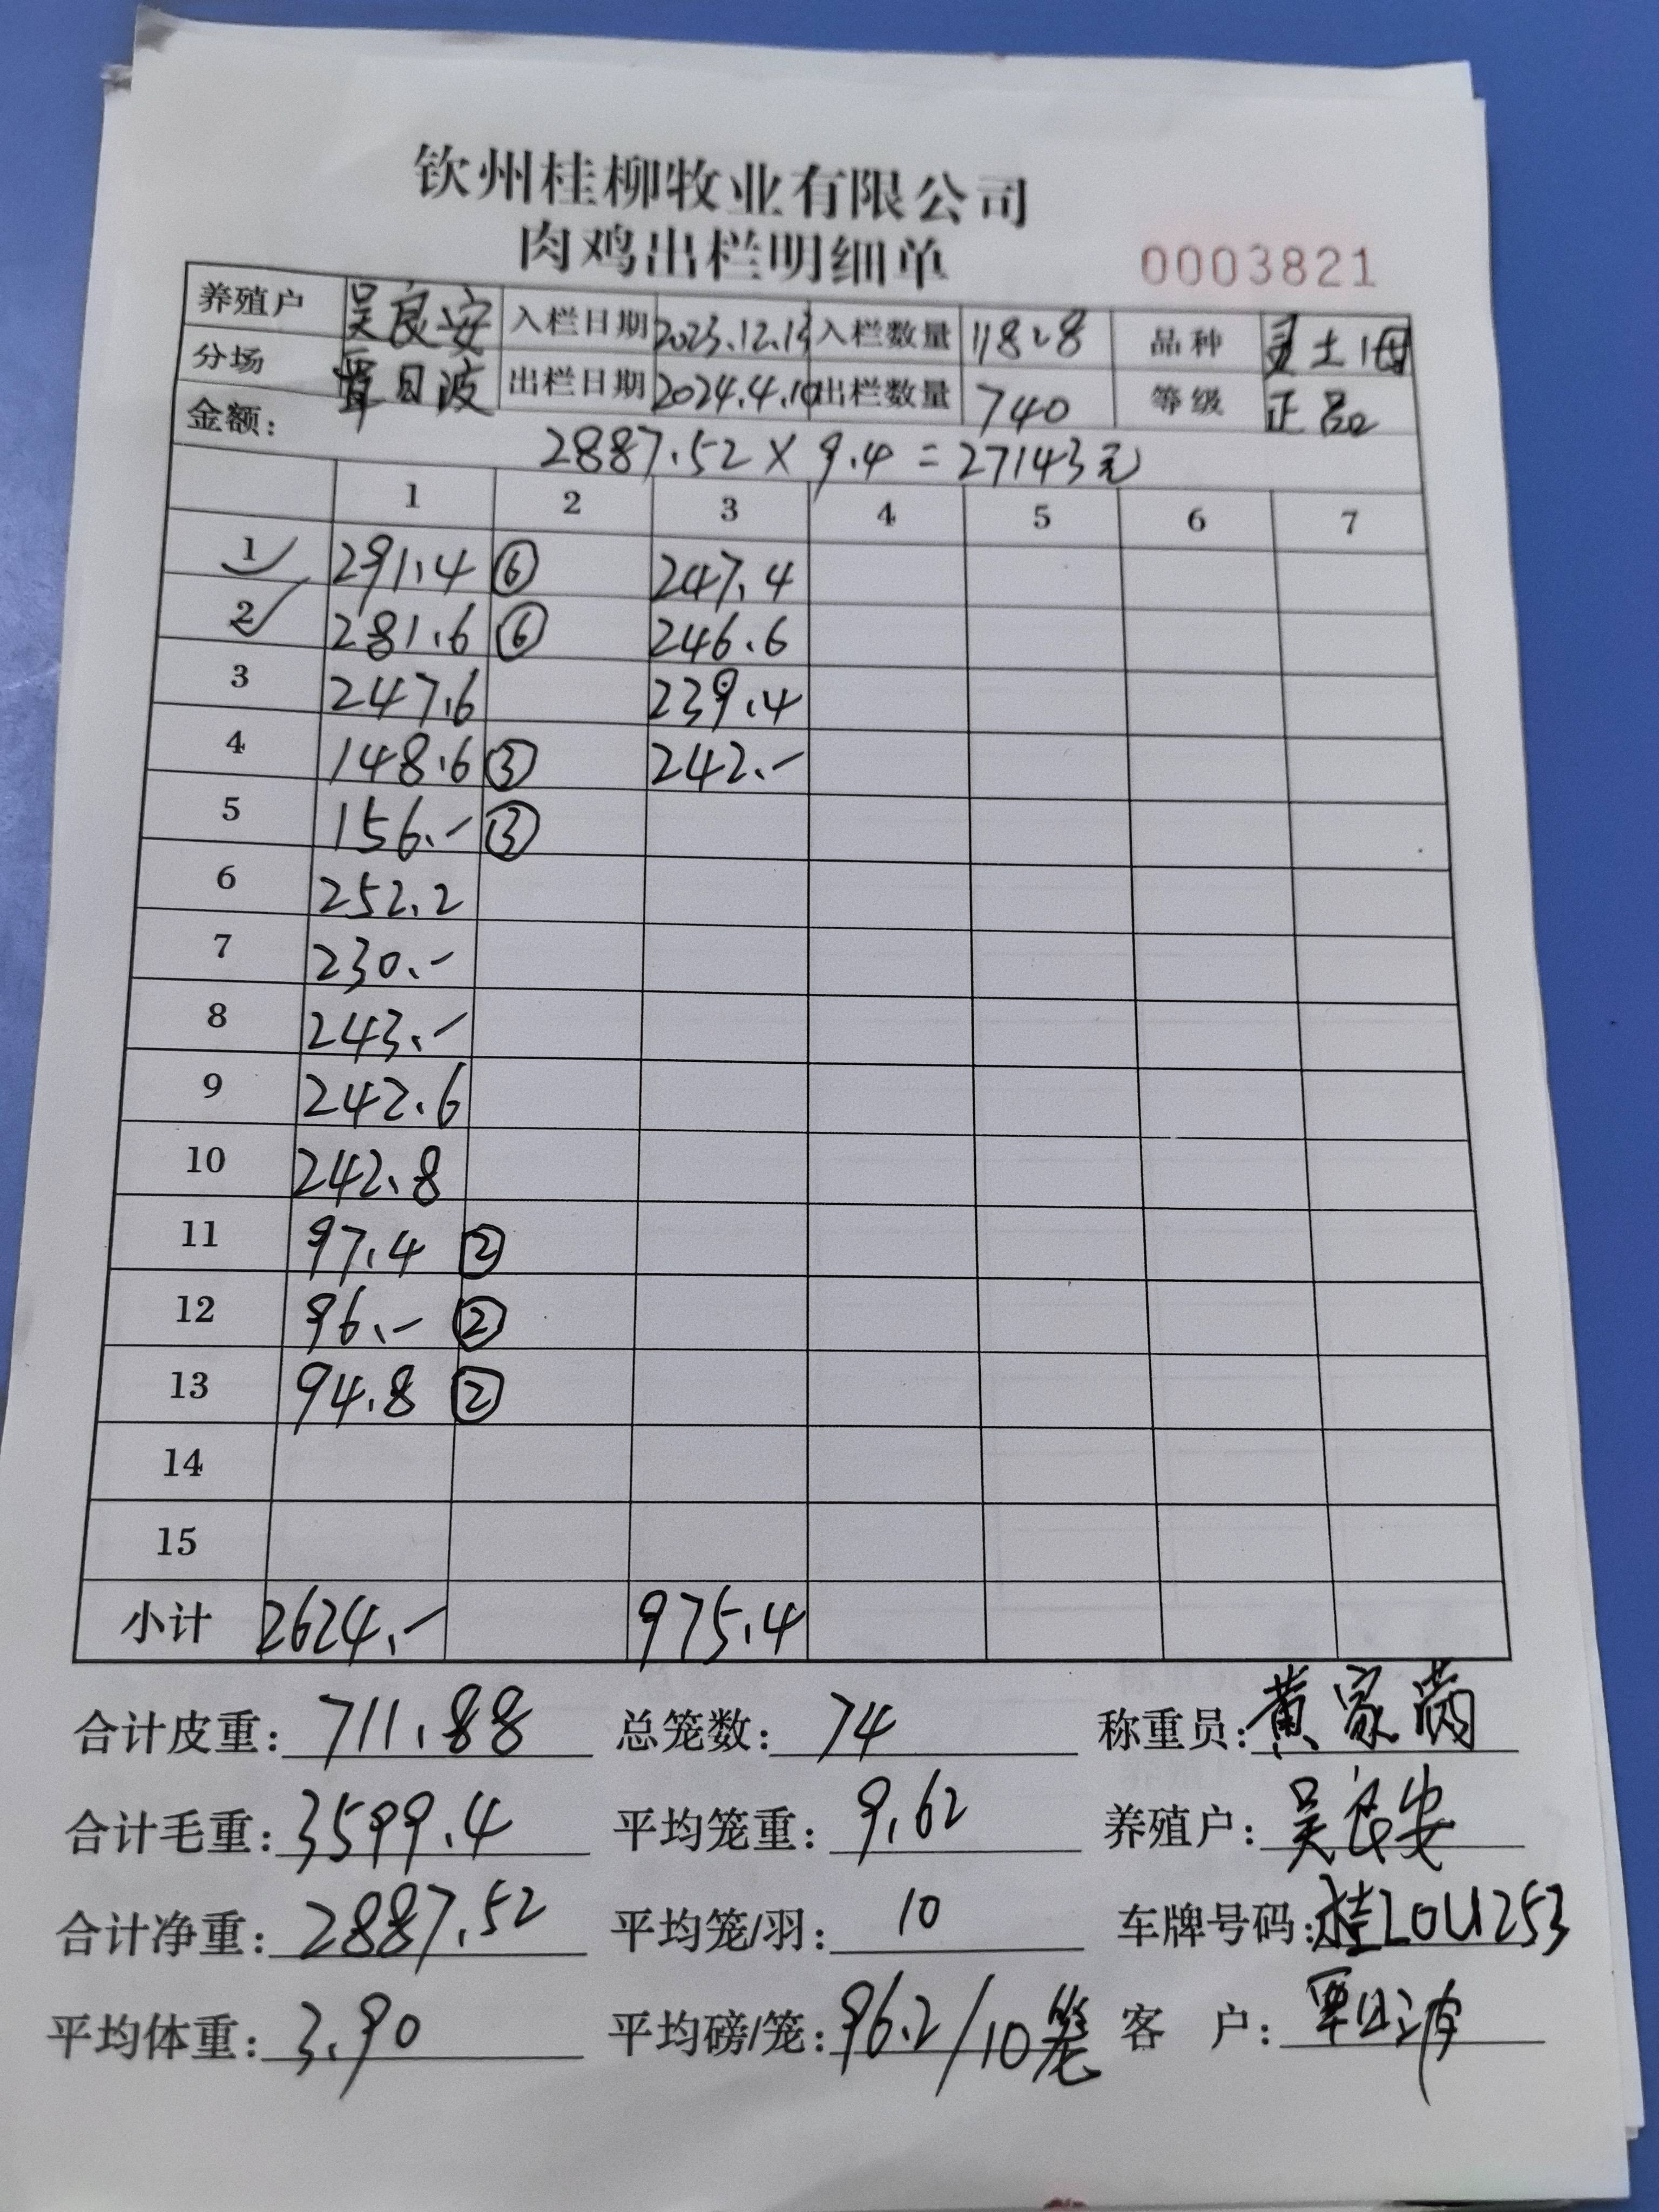 钦州桂柳牧业有限公司
肉鸡出栏明细单
0003821
养殖户 吴良安 入栏日期 2023.12.13 入栏数量 11828 品种 灵土1母
分场 覃日波 出栏日期 2024.4.10 出栏数量 740 等级 正品
金额: 2887.52×9.4=27143元
1 2 3 4 5 6 7
1 291.4 ⑥ 247.4
2 281.6 ⑥ 246.6
3 247.6 239.4
4 148.6 ③ 242.-
5 156.- ③
6 252.2
7 230.-
8 243.-
9 242.6
10 242.8
11 97.4 ②
12 96.- ②
13 94.8 ②
14
15
小计 2624.- 975.4
合计皮重: 711.88 总笼数: 74 称重员: 黄家
合计毛重: 3599.4 平均笼重: 9.62 养殖户: 吴良安
合计净重: 2887.52 平均笼/羽: 10 车牌号码: 桂L0U253
平均体重: 3.90 平均磅/笼: 96.2/10笼 客 户: 覃日波